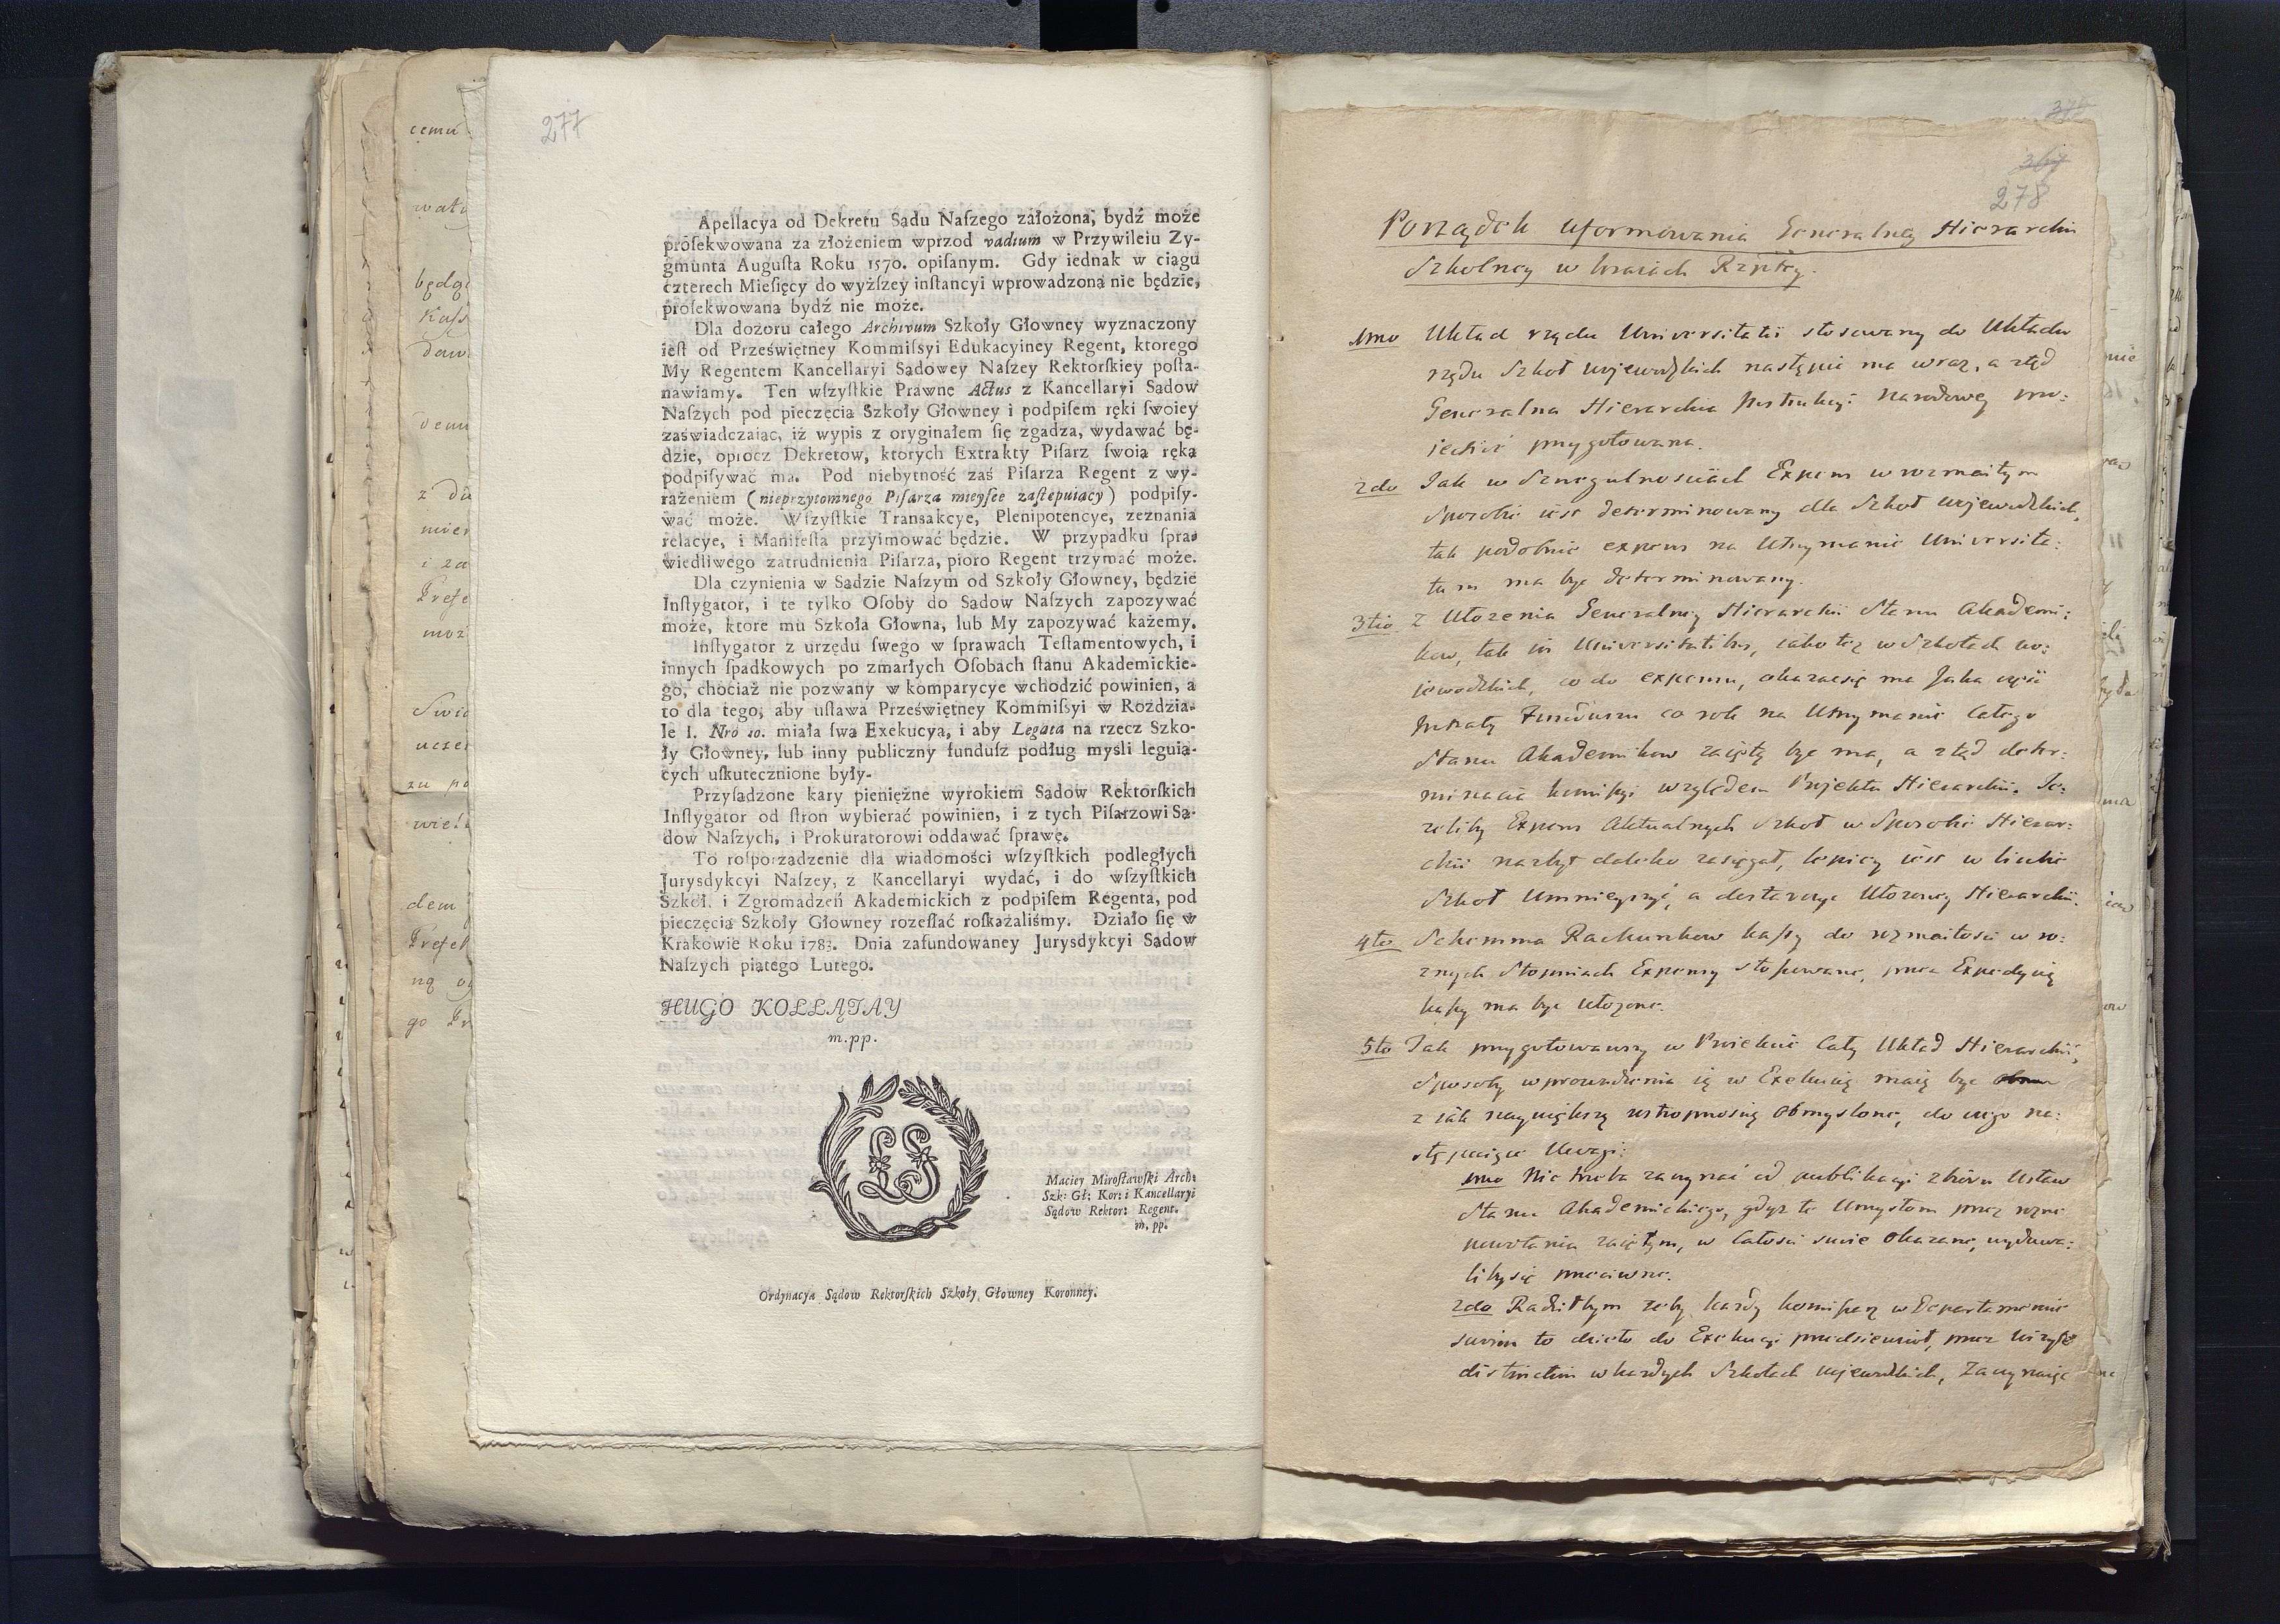 277
Apellacya od Dekretu Sadu Naſzego założona, bydź może
proſekwowana za złożeniem wprzod vadium w Przywileiu Zy-
gmunta Auguſta Roku 1570. opiſanym. Gdy iednak w ciągu
czterech Mieſięcy do wyżſzey inſtancyi wprowadzona nie będzie,
proſekwowana bydź nie może.
Dla dozoru całego Archivum Szkoły Głowney wyznaczony
ieſt od Przeświętney Kommiſsyi Edukacyiney Regent, ktorego
My Regentem Kancellaryi Sądowey Naſzey Rektorſkiey poſta-
nawiamy. Ten wſzyſtkie Prawne Actus z Kancellaryi Sadow
Naſzych pod pieczęcia Szkoły Głowney i podpiſem ręki ſwoiey
zaświadczaiąc, iż wypis z oryginałem ſię zgadza, wydawać bę-
dzie, oprocz Dekretow, ktorych Extrakty Piſarz ſwoia ręka
podpiſywać ma. Pod niebytność zaś Piſarza Regent z wy-
rażeniem (nieprzytomnego Piſarza mieyſce zaſtepuiący) podpiſy-
wać może. Wſzyſtkie Transakcye, Plenipotencye, zeznania
relacye, i Manifeſta przyimować będzie. W przypadku ſpra-
wiedliwego zatrudnienia Piſarza, pioro Regent trzymać może.
Dla czynienia w Sadzie Naſzym od Szkoły Głowney, będzie
Inſtygator, i te tylko Oſoby do Sadow Naſzych zapozywać
może, ktore mu Szkoła Głowna, lub My zapozywać każemy.
Inſtygator z urzędu ſwego w ſprawach Teſtamentowych, i
innych ſpadkowych po zmarłych Oſobach ſtanu Akademickie-
go, chociaż nie pozwany w komparycye wchodzić powinien, a
to dla tego, aby uſtawa Przeświętney Kommiſsyi w Rozdzia-
le I. Nro 10. miała ſwa Exekucya, i aby Legata na rzecz Szko-
ły Głowney, lub inny publiczny funduſz podług myśli leguia-
cych uſkutecznione były.
Przyſadzone kary pieniężne wyrokiem Sadow Rektorſkich
Inſtygator od ſtron wybierać powinien, i z tych Piſarzowi Sa-
dow Naſzych, i Prokuratorowi oddawać ſprawę.
To roſporządzenie dla wiadomości wſzyſtkich podległych
Jurysdykcyi Naſzey, z Kancellaryi wydać, i do wſzyſtkich
Szkół. i Zgromadzeń Akademickich z podpiſem Regenta, pod
pieczęcia Szkoły Głowney rozeſłać roſkazaliśmy. Działo ſię w
Krakowie Roku 1783. Dnia zafundowaney Jurysdykcyi Sadow
Naſzych piątego Lutego.
HUGO KOŁŁĄTAY
m.pp.
LS
Maciey Miroſławſki Arch:
Szk: Gł: Kor: i Kancellaryi
Sądow Rektor: Regent.
m. pp.
Ordynacya Sądow Rektorſkich Szkoły Głowney Koronney.
278
Porządek uformowania Generalney Hierarchii
Szkolney w kraiach Rzpltey.
1mo Układ rządu Universitatii stosowany do Układu
rządu Szkoł wojewodzkich nastąpić ma wraz, a ztąd
Generalna Hierarchia Jnstrukcyi Narodowey pro:
jekcie przygotowana.
2do Jak w Szczegulnosciach Expens w rozmaitym
Sposobie iest determinowany dla Szkoł wojewodzkich,
tak podobnie expens na Utrzymanie Universita:
tum ma byc determinowany.
3tio Z Ułożenia Generalney Hierarchii Stanu Akademi:
kow, tak in Universitatibus, iako też w Szkołach wo:
jewodzkich, co do expensu, okazać się ma Jaka część
Jntraty Funduszu co rok na Utrzymanie Całego
Stanu Akademikow zaiętą byc ma, a ztąd deter:
minacia komisyi względem Projektu Hierarchii. Je:
żeliby Expens Aktualnych Szkoł w Sposobie Hierar:
chii nazbyt daleko zasięgał, lepiey iest w liczbie
Szkoł Umnieyszyć, a dostarczyc Ułożoney Hierarchii.
4to Schemma Rachunkow kassy do rozmaitosci w ro:
znych Stopniach Expensy stosowane, przez Expedycią
kassy ma byc ułożone.
5to Jak przygotowawszy w Proiekcie Cały Układ Hierarchii,
Sposoby wprowadzenia ią w Exekucią maią byc
z iak naywiększą ostroznoscią Obmyslone, do czego na:
stępuiące Uwagi:
1mo Nie trzeba zaczynać od publikacyi zbioru Ustaw
Stanu Akademickiego, gdyż te Umysłom przez rożne
powołania zaiętym, w Całosci swoie Okazane, wydawa:
łiby się przeciwne.
2do Radziłbym żeby każdy komisarz w Departamencie
swoim to dzieło do Exekucyi przedsiewziął, przez wizytę
distinctim w każdych Szkołach wojewodzkich, Zaczynaiąc